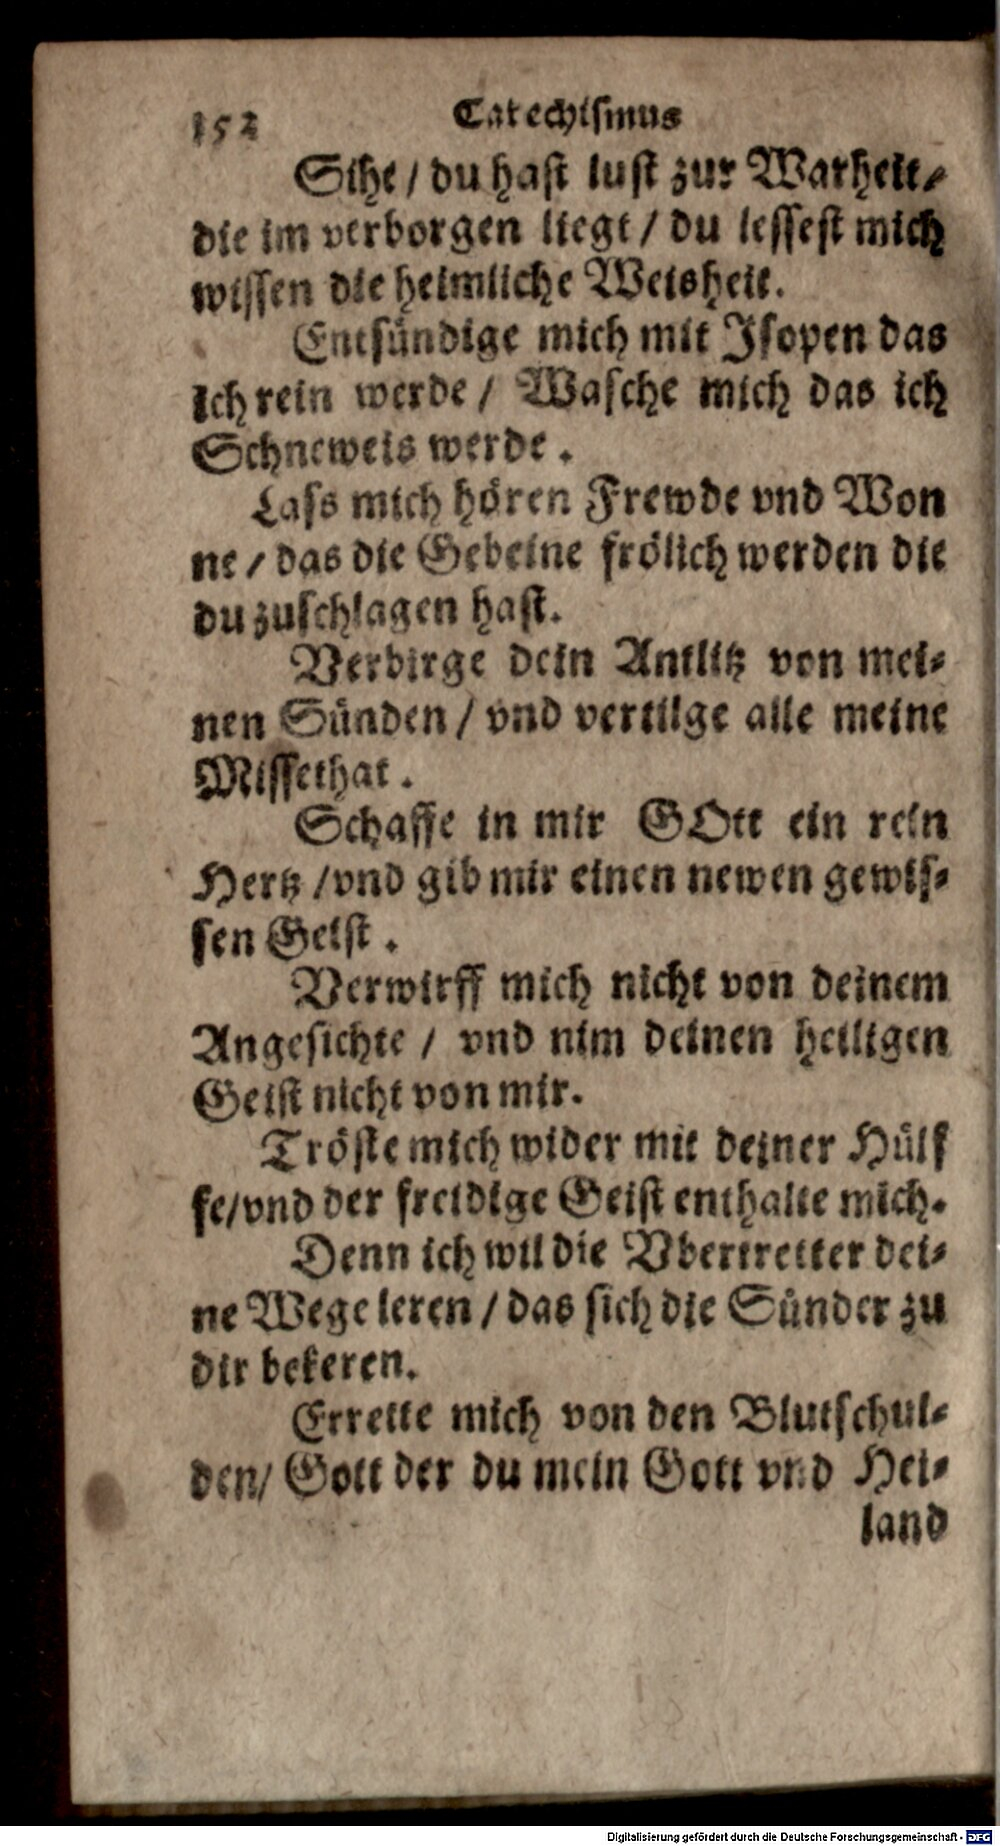 152 Catechismus
Sihe / du hast lust zur Warheit /
die im verborgen liegt / du lessest mich
wissen die heimliche Weisheit.
Entsündige mich mit Jsopen das
ich rein werde / Wasche mich das ich
Schneweis werde.
Lass mich hören Frewde vnd Won
ne / das die Gebeine frölich werden die
du zuschlagen hast.
Verbirge dein Antlitz von mei-
nen Sünden / vnd vertilge alle meine
Missethat.
Schaffe in mir GOtt ein rein
Hertz / vnd gib mir einen newen gewis-
sen Geist.
Verwirff mich nicht von deinem
Angesichte / vnd nim deinen heiligen
Geist nicht von mir.
Tröste mich wider mit deiner Hülf
fe / vnd der freidige Geist enthalte mich.
Denn ich wil die Vbertretter dei-
ne Wege leren / das sich die Sünder zu
dir bekeren.
Errette mich von den Blutschul-
den / Gott der du mein Gott vnd Hei-
land
Digitalisierung gefördert durch die Deutsche Forschungsgemeinschaft - DFG